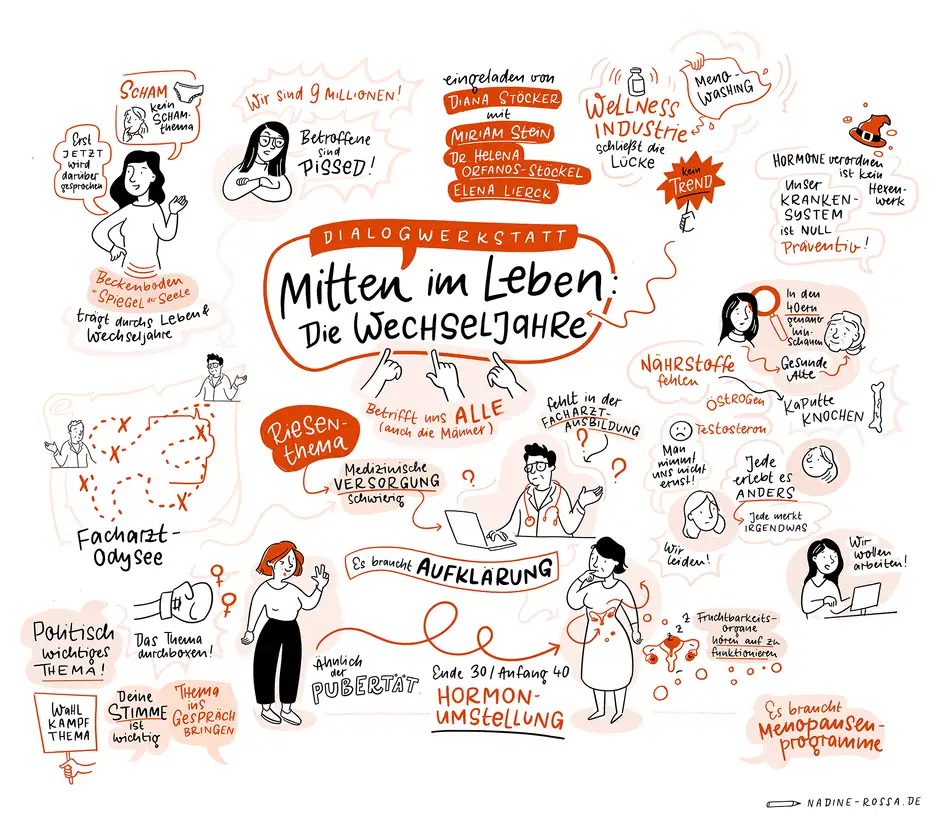 SCHAM
kein
SCHAM-
thema
Erst
JETZT
wird
darüber
gesprochen
Beckenboden
= SPIEGEL der Seele
trägt durchs Leben &
Wechseljahre
Wir sind 9 MILLIONEN!
Betroffene
sind
PISSED!
eingeladen von
DIANA STÖCKER
mit
MIRIAM STEIN
DR. HELENA
ORFANOS-STÖCKEL
ELENA LIERCK
WELLNESS
INDUSTRIE
schließt die
LÜCKE
MENO-
WASHING
kein
TREND
HORMONE verordnen
ist kein
HEXEN-
werk
UNSER
KRANKEN-
SYSTEM
ist NULL
Präventiv!
DIALOGWERKSTATT
Mitten im Leben:
Die WECHSELJAHRE
Betrifft uns ALLE
(auch die Männer)
In den
40ern
genauer
hin-
schauen
Gesunde
Alte
NÄHRSTOFFE
fehlen
ÖSTROGEN
KAPUTTE
KNOCHEN
Testosteron
Man
nimmt
uns nicht
ernst!
Jede
erlebt es
ANDERS
Jede merkt
IRGENDWAS
Wir
leiden!
Wir
wollen
arbeiten!
Facharzt-
Odysee
RIESEN-
thema
Medizinische
VERSORGUNG
schwierig
fehlt in der
FACHARZT-
AUSBILDUNG
?
?
?
Es braucht AUFKLÄRUNG
Politisch
wichtiges
THEMA!
Das Thema
durchboxen!
WAHL
KAMPF
THEMA
Deine
STIMME
ist
wichtig
THEMA
INS
GESPRÄCH
BRINGEN
Ähnlich
der
PUBERTÄT
Ende 30/Anfang 40
HORMON-
UMSTELLUNG
z
z
z
Fruchtbarkeits-
organe
hören auf zu
funktionieren
Es braucht
Menopausen-
programme
NADINE-ROSSA.DE